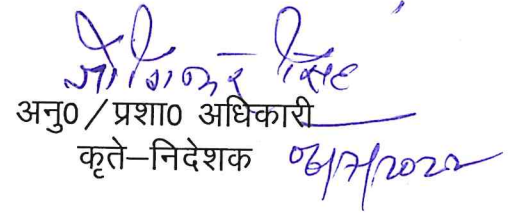 सिंह
अनु0/प्रशा0 अधिकारी
कृते–निदेशक 06/7/2022